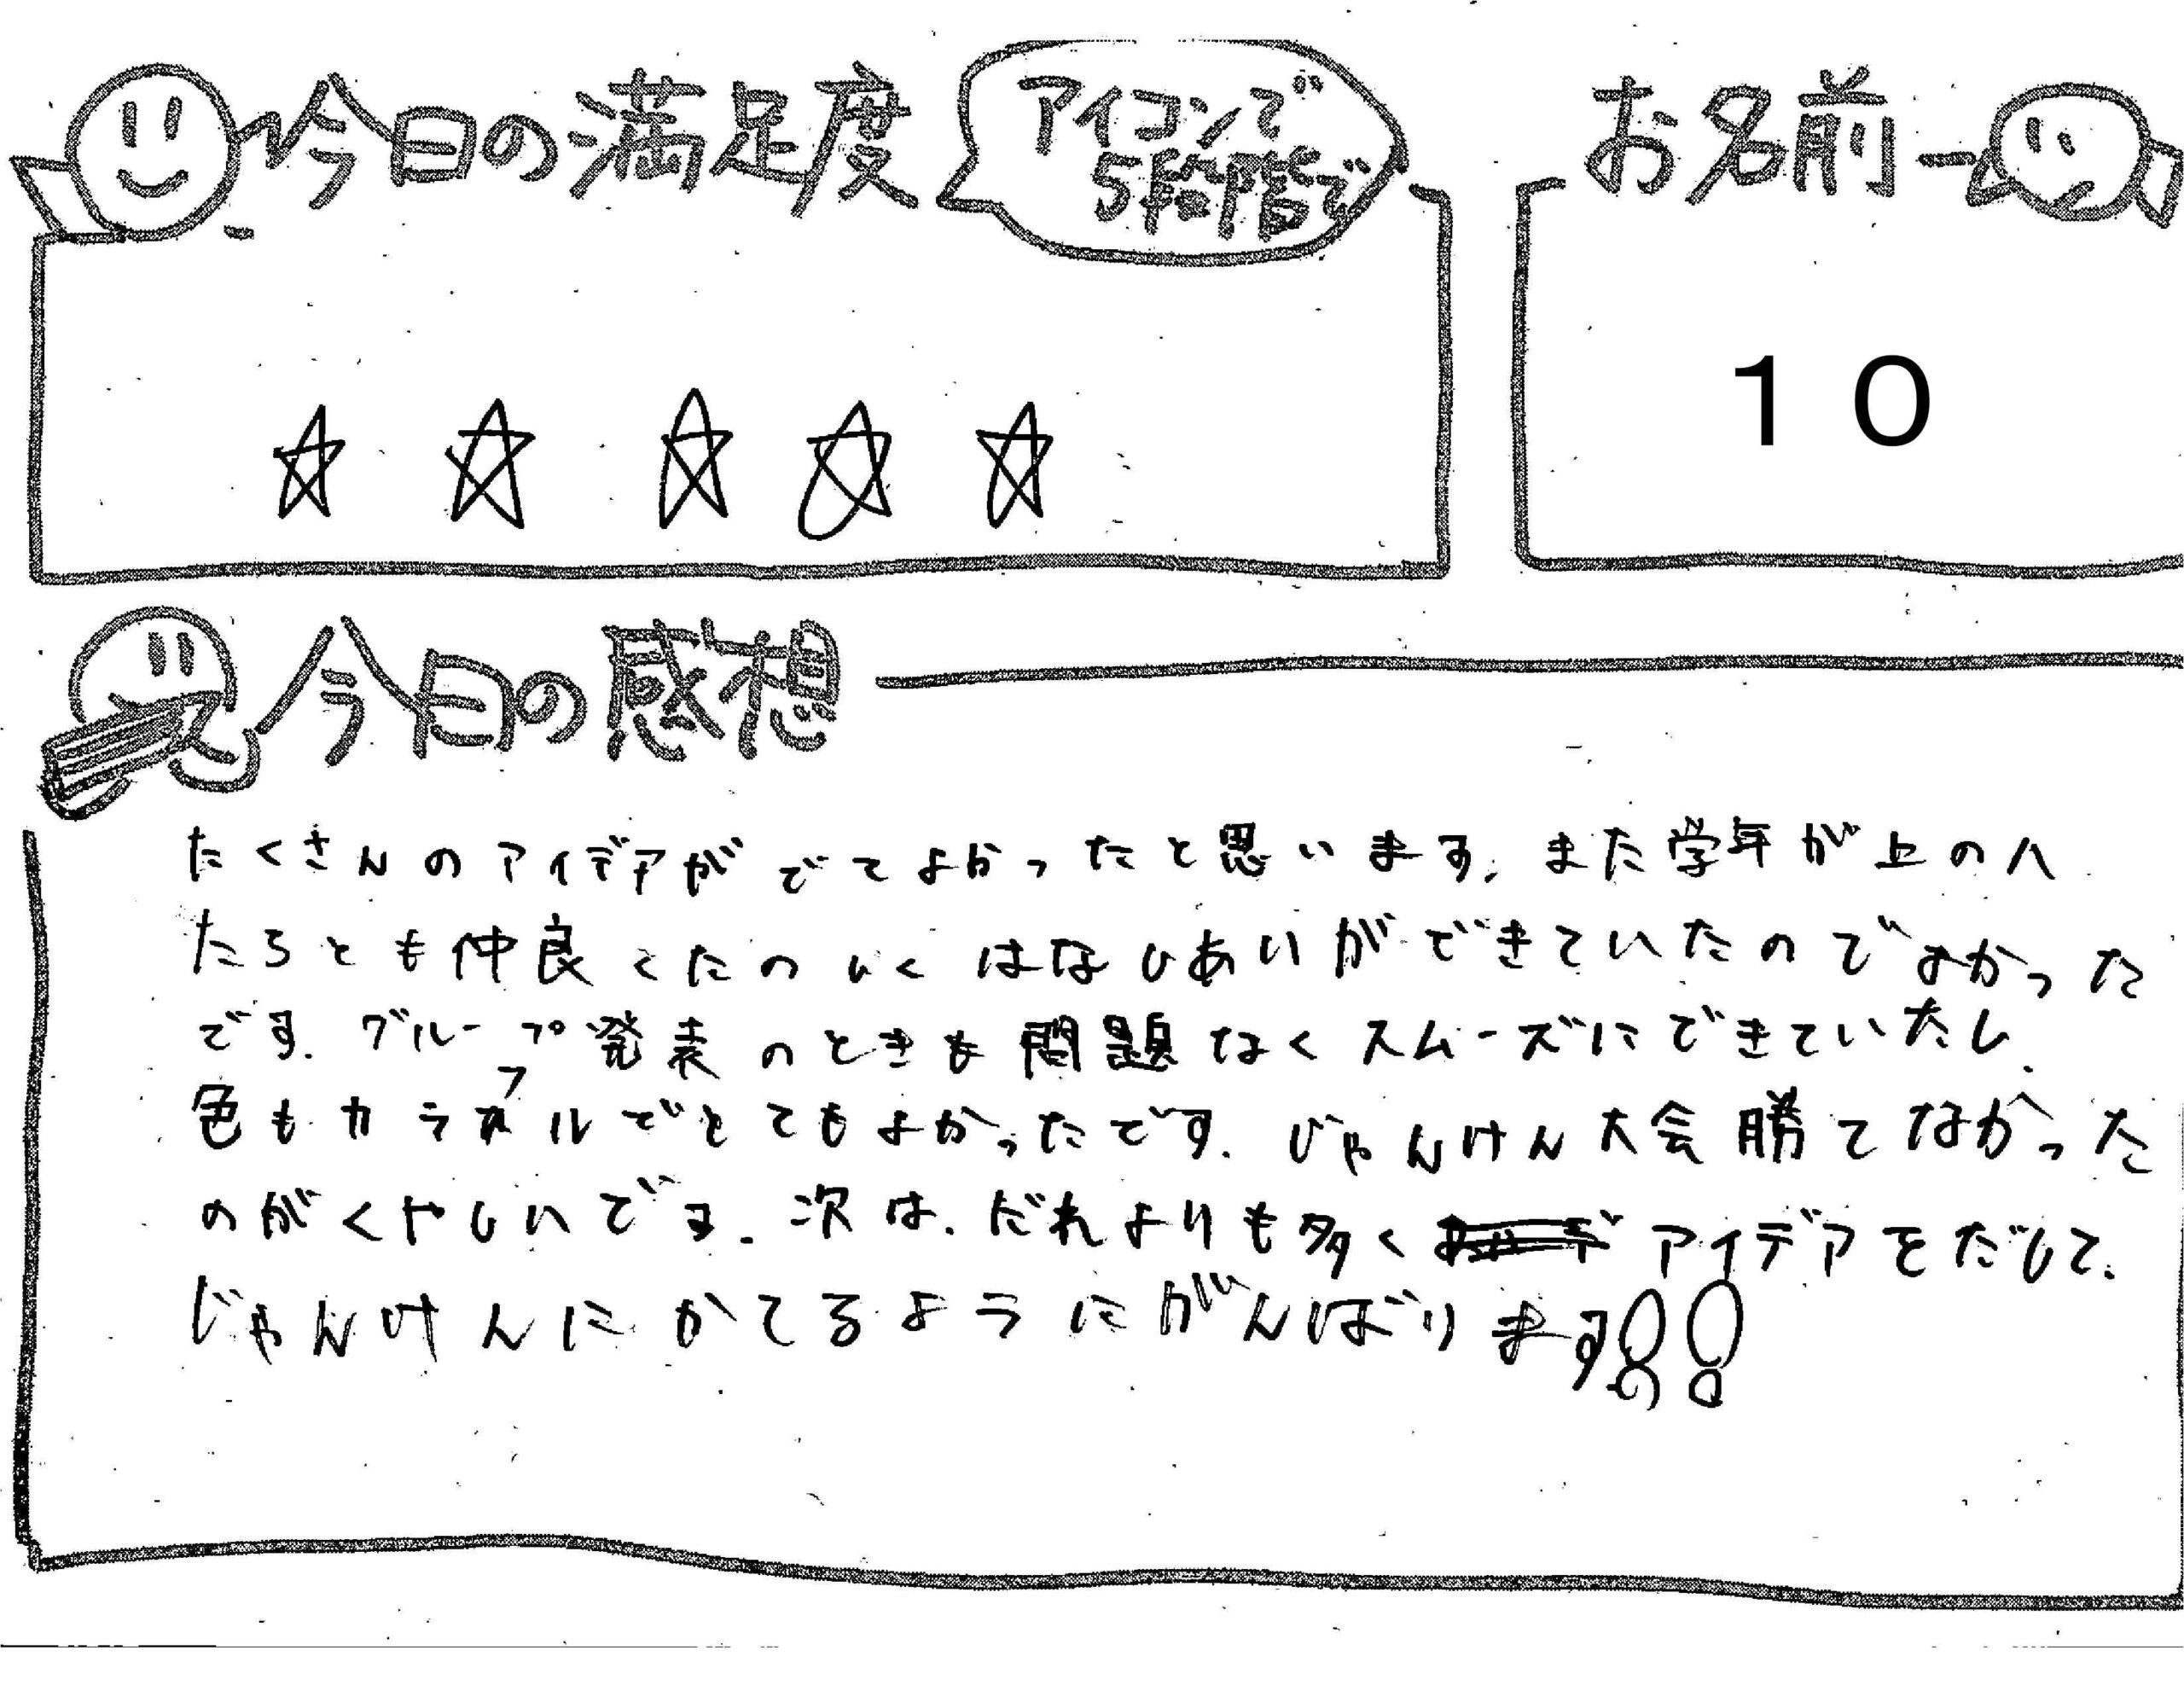 今日の満足度
アイコンで
5段階で
お名前
１０
今日の感想
たくさんのアイデアがでてよかったと思います、また学年が上の人
たちとも仲良くたのしくはなしあいができていたのでよかった
です.グループ発表のときも問題なくスムーズにできていたし、
色もカラフルでとてもよかったです.じゃんけん大会勝てなかった
のがくやしいです.次は、だれよりも多くアイデアをだして、
じゃんけんにかてるようにがんばります!!